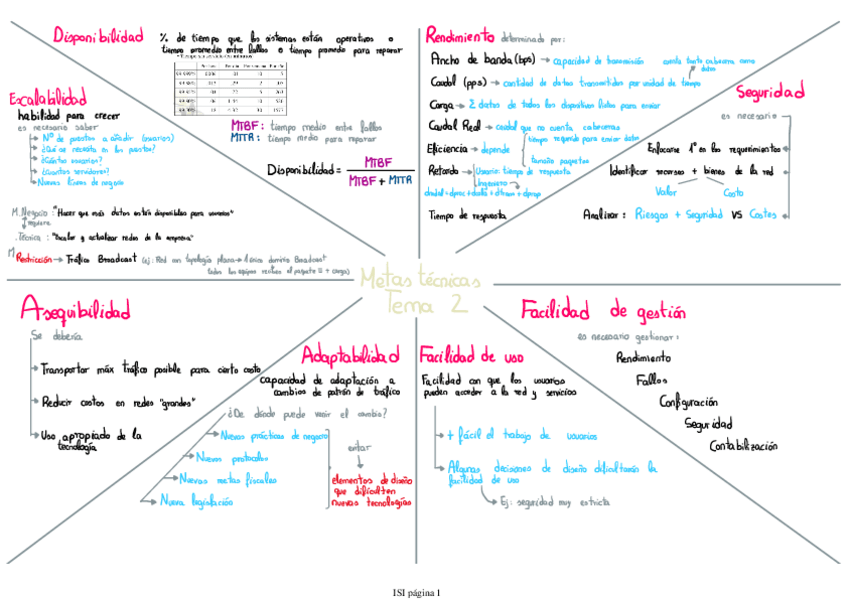 Disponibilidad
% de tiempo que los sistemas están operativos o
tiempo promedio entre fallos o tiempo promedio para reparar
MTBF: tiempo medio entre fallos
MTTR: tiempo medio para reparar
Disponibilidad = MTBF
MTBF + MTTR
Escalabilidad
habilidad para crecer
es necesario saber
Nº de puestos a añadir (usuarios)
¿Qué se necesita en los puestos?
¿Cuántos usuarios?
¿Cuántos servidores?
Nuevas líneas de negocio
M. Negocio: "Hacer que más datos estén disponibles para usuarios"
requiere
M. Técnica: "Escalar y actualizar redes de la empresa"
Restricción → Tráfico Broadcast (ej: Red con topología plana → 1 único dominio Broadcast
todos los equipos reciben el paquete = + carga)
Rendimiento determinado por:
Ancho de banda (bps) → capacidad de transmisión
cuenta tanto cabeceras como
datos
Caudal (pps) → cantidad de datos transmitidos por unidad de tiempo
Carga → Σ datos de todos los dispositivos listos para enviar
Caudal Real → caudal que no cuenta cabeceras
Eficiencia → depende
tiempo requerido para enviar datos
tamaño paquetes
Retardo → Usuario: tiempo de respuesta
Ingeniero
Tiempo de respuesta
Seguridad
es necesario
Enfocarse 1º en los requerimientos
Identificar recursos + bienes de la red
Valor
Costo
Analizar: Riesgos + Seguridad VS Costes
Metas técnicas
Tema 2
Asequibilidad
Se debería
Transportar máx tráfico posible para cierto costo
Reducir costos en redes "grandes"
Uso apropiado de la
tecnología
Adaptabilidad
capacidad de adaptación a
cambios de patrón de tráfico
¿De dónde puede venir el cambio?
Nuevas prácticas de negocio
Nuevos protocolos
Nuevas metas fiscales
Nueva legislación
evitar
elementos de diseño
que dificulten
nuevas tecnologías
Facilidad de uso
Facilidad con que los usuarios
pueden acceder a la red y servicios
+ fácil el trabajo de usuarios
Algunas decisiones de diseño dificultarán la
facilidad de uso
Ej: seguridad muy estricta
Facilidad de gestión
es necesario gestionar:
Rendimiento
Fallos
Configuración
Seguridad
Contabilización
ISI página 1